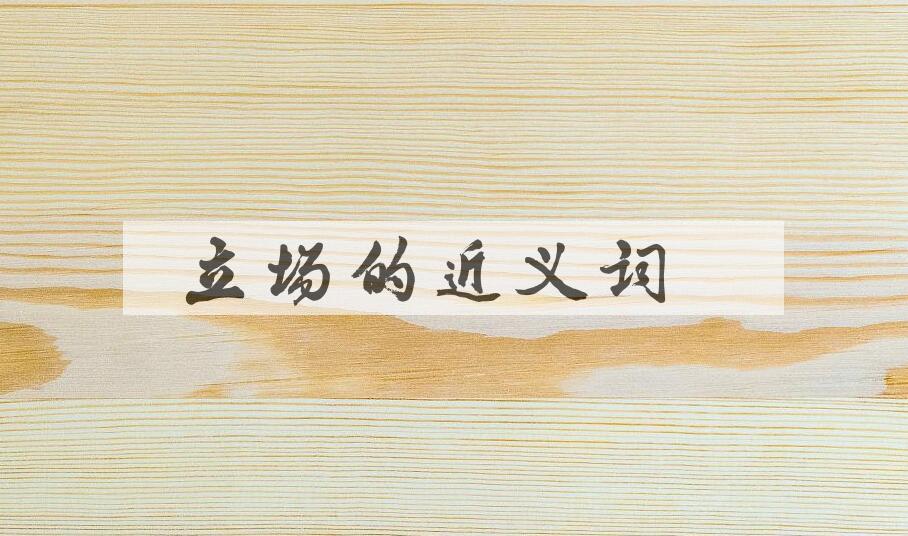 立场的近义词